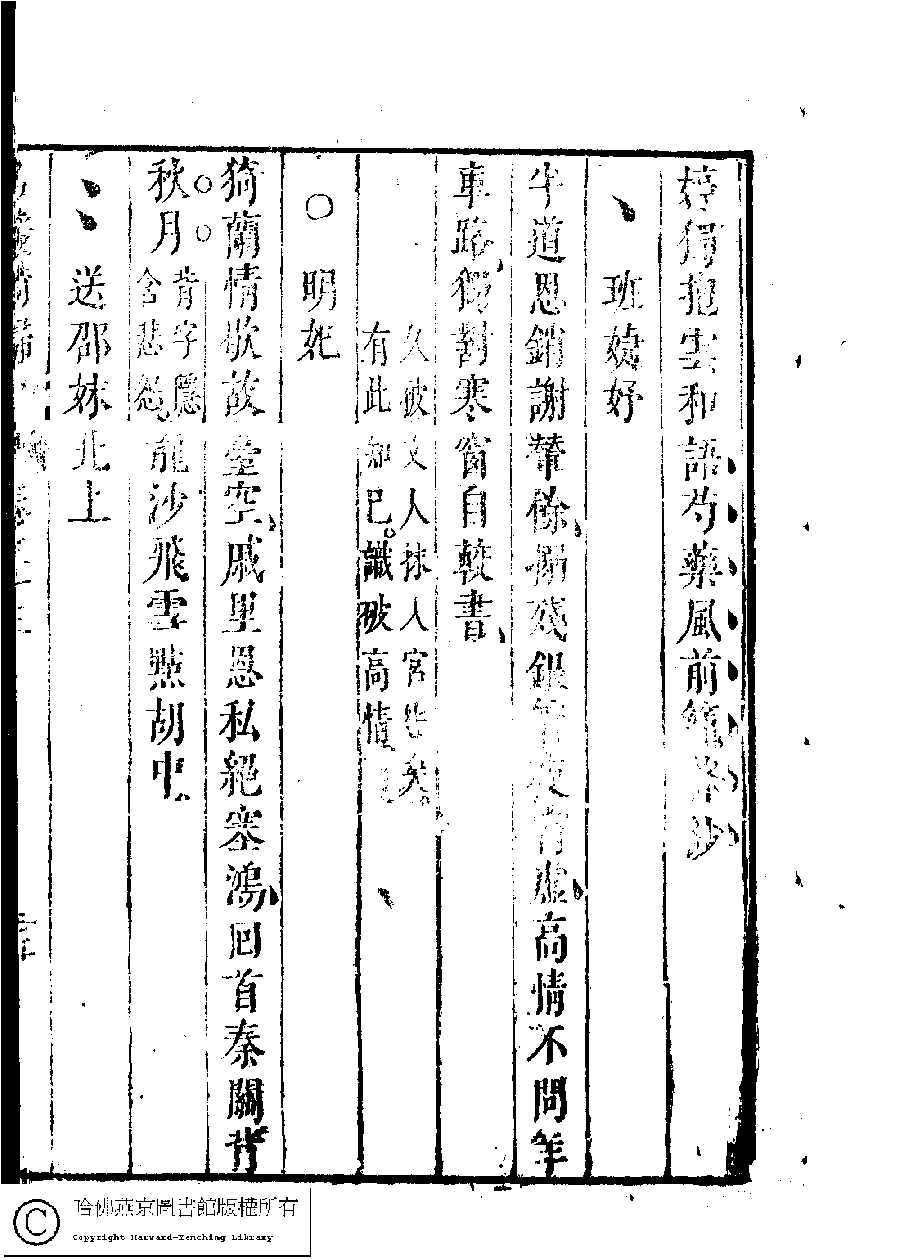 獨抱雲和語芍藥風前
班婕妤
半道恩銷謝輦餘殘銀虛高情不問羊
車路獨對寒窗自較書
久被文人抹入宮
有此知已識破高情
明妃
猗蘭情歇故臺空戚里恩私絕塞鴻回首秦關背
秋月背字隱含悲愁龍沙飛雪點胡中
送邵妹北上
哈佛燕京圖書館版權所有
Copyright Harvard-Yenching Library